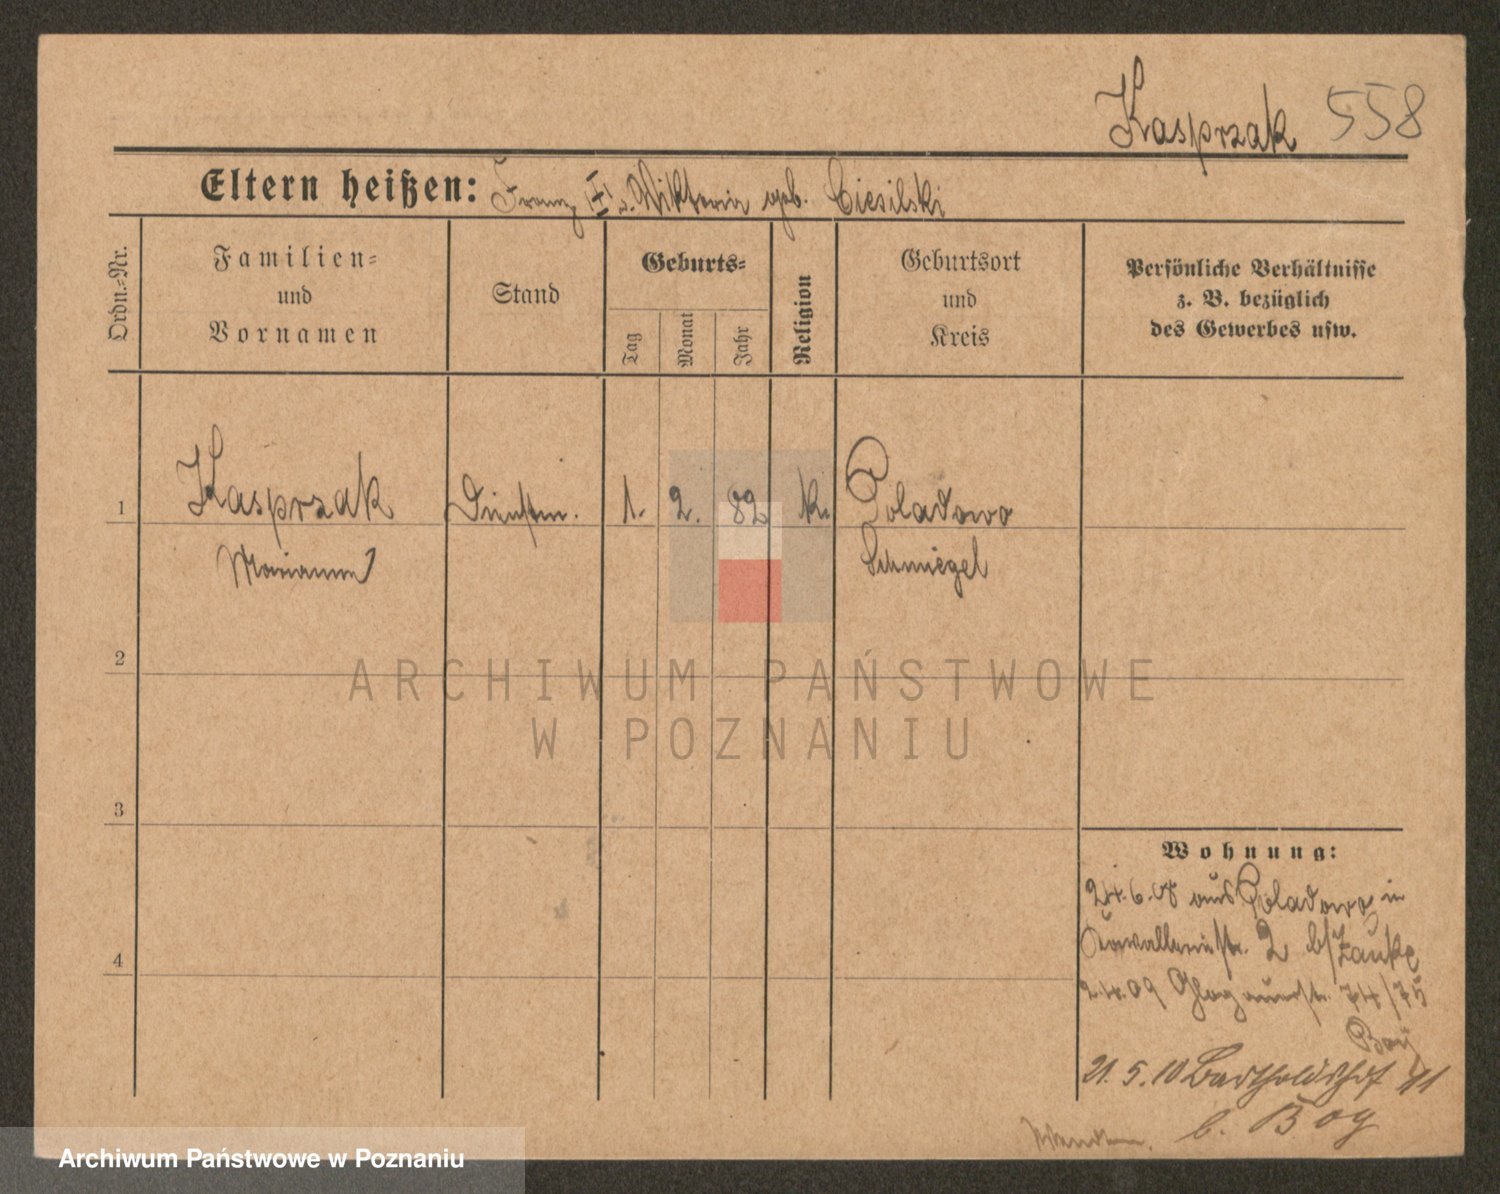 Kasprzak 558
Eltern heißen: Franz (†) u. Wiktoria geb. Ciesilski
Ordn.-Nr.
Familien-
und
Vornamen
Stand
Geburts-
Tag
Monat
Jahr
Religion
Geburtsort
und
Kreis
Persönliche Verhältnisse
z. B. bezüglich
des Gewerbes usw.
1 Kasprzak 1. 2. 82 k. Poladowo
Marianna Schmiegel
2
3
4
Wohnung:
24.6.08 aus Poladowo in
2 b/
2.4.09 Glogauerstr. 74/75
21.5.10 Bartholdshof
b. Bog
ARCHIWUM PAŃSTWOWE
W POZNANIU
Archiwum Państwowe w Poznaniu